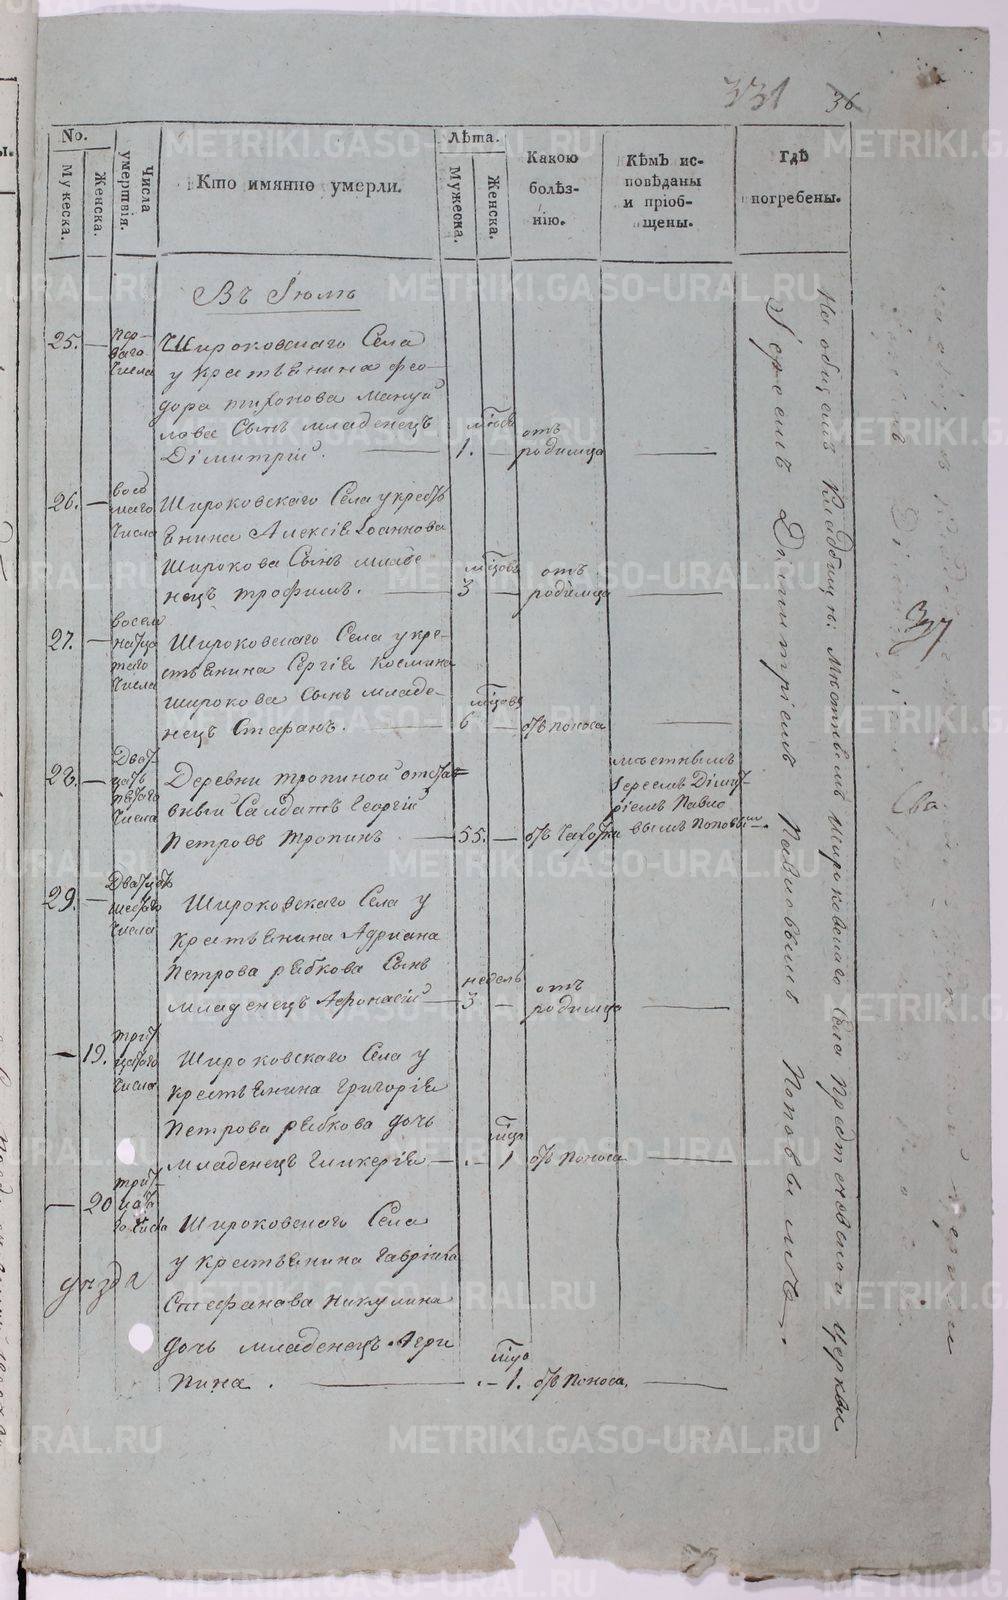 331 36
No. Лѣта.
Мужеска. Женска. Числа умертвія. Кто имянно умерли. Мужеска. Женска. Какою болѣзнію. Кѣмъ исповѣданы и пріобщены. Гдѣ погребены.
Въ Іюлѣ
25. — перваго числа
Широковскаго Села
у крестьянина Ѳео-
дора тихонова Мануй
лова Сынъ младенецъ
Дімитрій. — 1. — отъ родимца —
26. — восмаго числа
Широковскаго Села у крестъ
янина Алексія Іоаннова
Широкова Сынъ младе
нецъ трофимъ. — 3 — отъ родимца —
27. — числа
Широковскаго Села у кре-
стьянина Сергія Космина
широкова Сынъ младе-
нецъ Стефанъ. — 6 — отъ поноса —
28. — числа
Деревни тропиной отстав=
вный Салдатъ Георгій
Петровъ Тропинъ — 55. — отъ Чахотки
мѣстнымъ Іереемъ Діми-
тріемъ Павло
вымъ Поповымъ.
29. — числа
Широковскаго Села у
крестьянина Адриана
Петрова рябкова Сынъ
младенецъ Афонасій — недель 3 — отъ родимца —
— 19. числа
Широковскаго Села у
крестьянина Григорія
Петрова рябкова дочь
младенецъ гликерія — 1 отъ поноса —
— 20
Широковскаго Села
у крестьянина Гавріила
Стефанова Никулина
дочь младенецъ Агри
пина. — 1. отъ поноса, —
На общемъ Кладбищѣ Мѣстнымъ Широковскаго Села Предтечевской Церкви
Іереемъ Димитріемъ Павловымъ Поповымъ.
337
METRIKI.GASO-URAL.RU